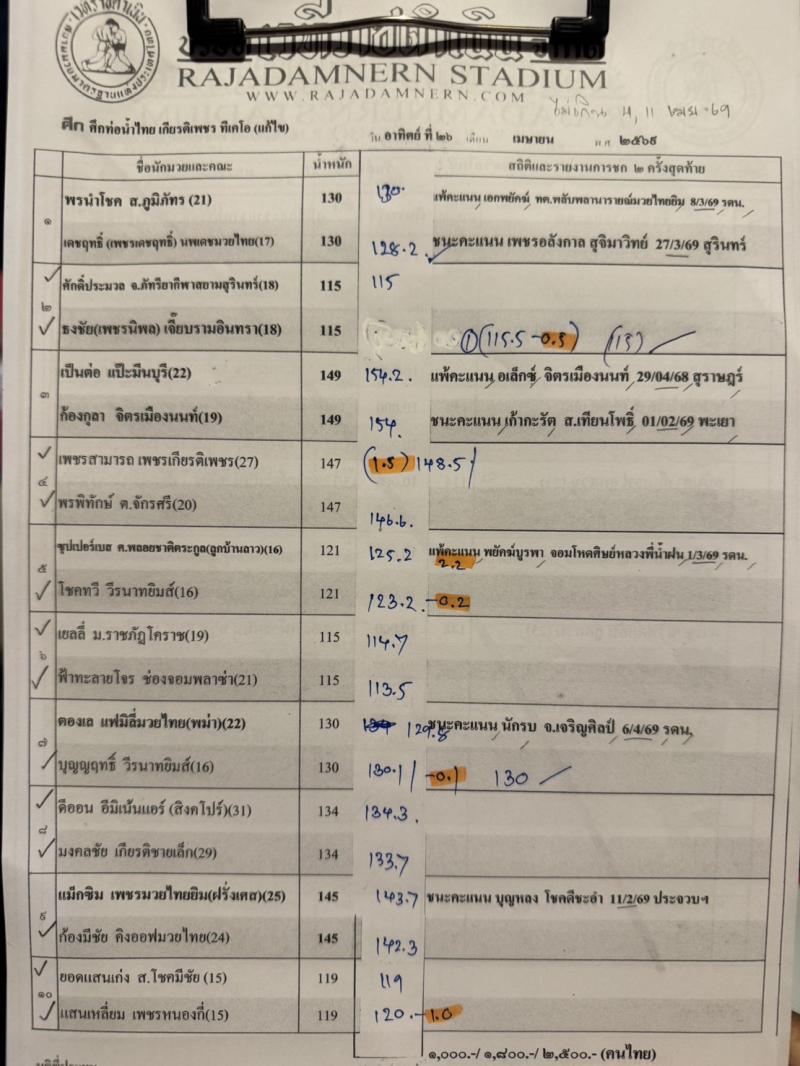 RAJADAMNERN STADIUM
WWW.RAJADAMNERN.COM
ศึก ศึกท่อน้ำไทย เกียรติเพชร ทีเคโอ (แก้ไข) วัน อาทิตย์ ที่ ๒๖ เดือน เมษายน พ.ศ. ๒๕๖๙
ชื่อนักมวยและคณะ น้ำหนัก สถิติและรายงานการชก ๒ ครั้งสุดท้าย
๑
พรนำโชค ส.ภูมิภัทร (21) 130 130. แพ้คะแนน เอกพยัคฆ์ ทศ.พลับพลานารายณ์มวยไทยยิม 8/3/69 รดน.
เดชฤทธิ์ (เพชรเดชฤทธิ์) นพเดชมวยไทย(17) 130 128.2. ชนะคะแนน เพชรอลังกาล สุจิมาวิทย์ 27/3/69 สุรินทร์
๒
ศักดิ์ประมวล จ.ภัทรียากีฬาสยามสุรินทร์(18) 115 115
ธงชัย(เพชรนิพล) เจี๊ยบรามอินทรา(18) 115 ① (115.5 -0.5) (115)
๓
เป็นต่อ แป๊ะมีนบุรี(22) 149 154.2. แพ้คะแนน อเล็กซ์ จิตรเมืองนนท์ 29/04/68 สุราษฎร์
ก้องกุลา จิตรเมืองนนท์(19) 149 154. ชนะคะแนน เก้ากะรัต ส.เทียนโพธิ์ 01/02/69 พะเยา
๔
เพชรสามารถ เพชรเกียรติเพชร(27) 147 (1.5) 148.5
พรพิทักษ์ ต.จักรศรี(20) 147 146.6.
๕
ซุปเปอร์เบส ศ.พลอยชาติตระกูล(ลูกบ้านลาว)(16) 121 125.2 แพ้คะแนน พยัคฆ์บูรพา จอมโหดศิษย์หลวงพี่น้ำฝน 1/3/69 รดน.
2.2
โชคทวี วีรนาทยิมส์(16) 121 123.2. -0.2
๖
เยลลี่ ม.ราชภัฏโคราช(19) 115 114.7
ฟ้าทะลายโจร ช่องจอมพลาซ่า(21) 115 113.5
๗
ตองเล แฟมิลี่มวยไทย(พม่า)(22) 130 129.8 ชนะคะแนน นักรบ จ.เจริญศิลป์ 6/4/69 รดน.
บุญญฤทธิ์ วีรนาทยิมส์(16) 130 130.1 -0.1 130
๘
ดีออน อีมิเน้นแอร์ (สิงคโปร์)(31) 134 134.3.
มงคลชัย เกียรติชายเล็ก(29) 134 133.7
๙
แม็กซิม เพชรมวยไทยยิม(ฝรั่งเศส)(25) 145 143.7 ชนะคะแนน บุญหลง โชคดีชะอำ 11/2/69 ประจวบฯ
ก้องมีชัย คิงออฟมวยไทย(24) 145 142.3
๑๐
ยอดแสนเก่ง ส.โชคมีชัย (15) 119 119
แสนเหลี่ยม เพชรหนองกี่(15) 119 120. -1.0
๑,๐๐๐.-/ ๑,๘๐๐.-/ ๒,๕๐๐.- (คนไทย)